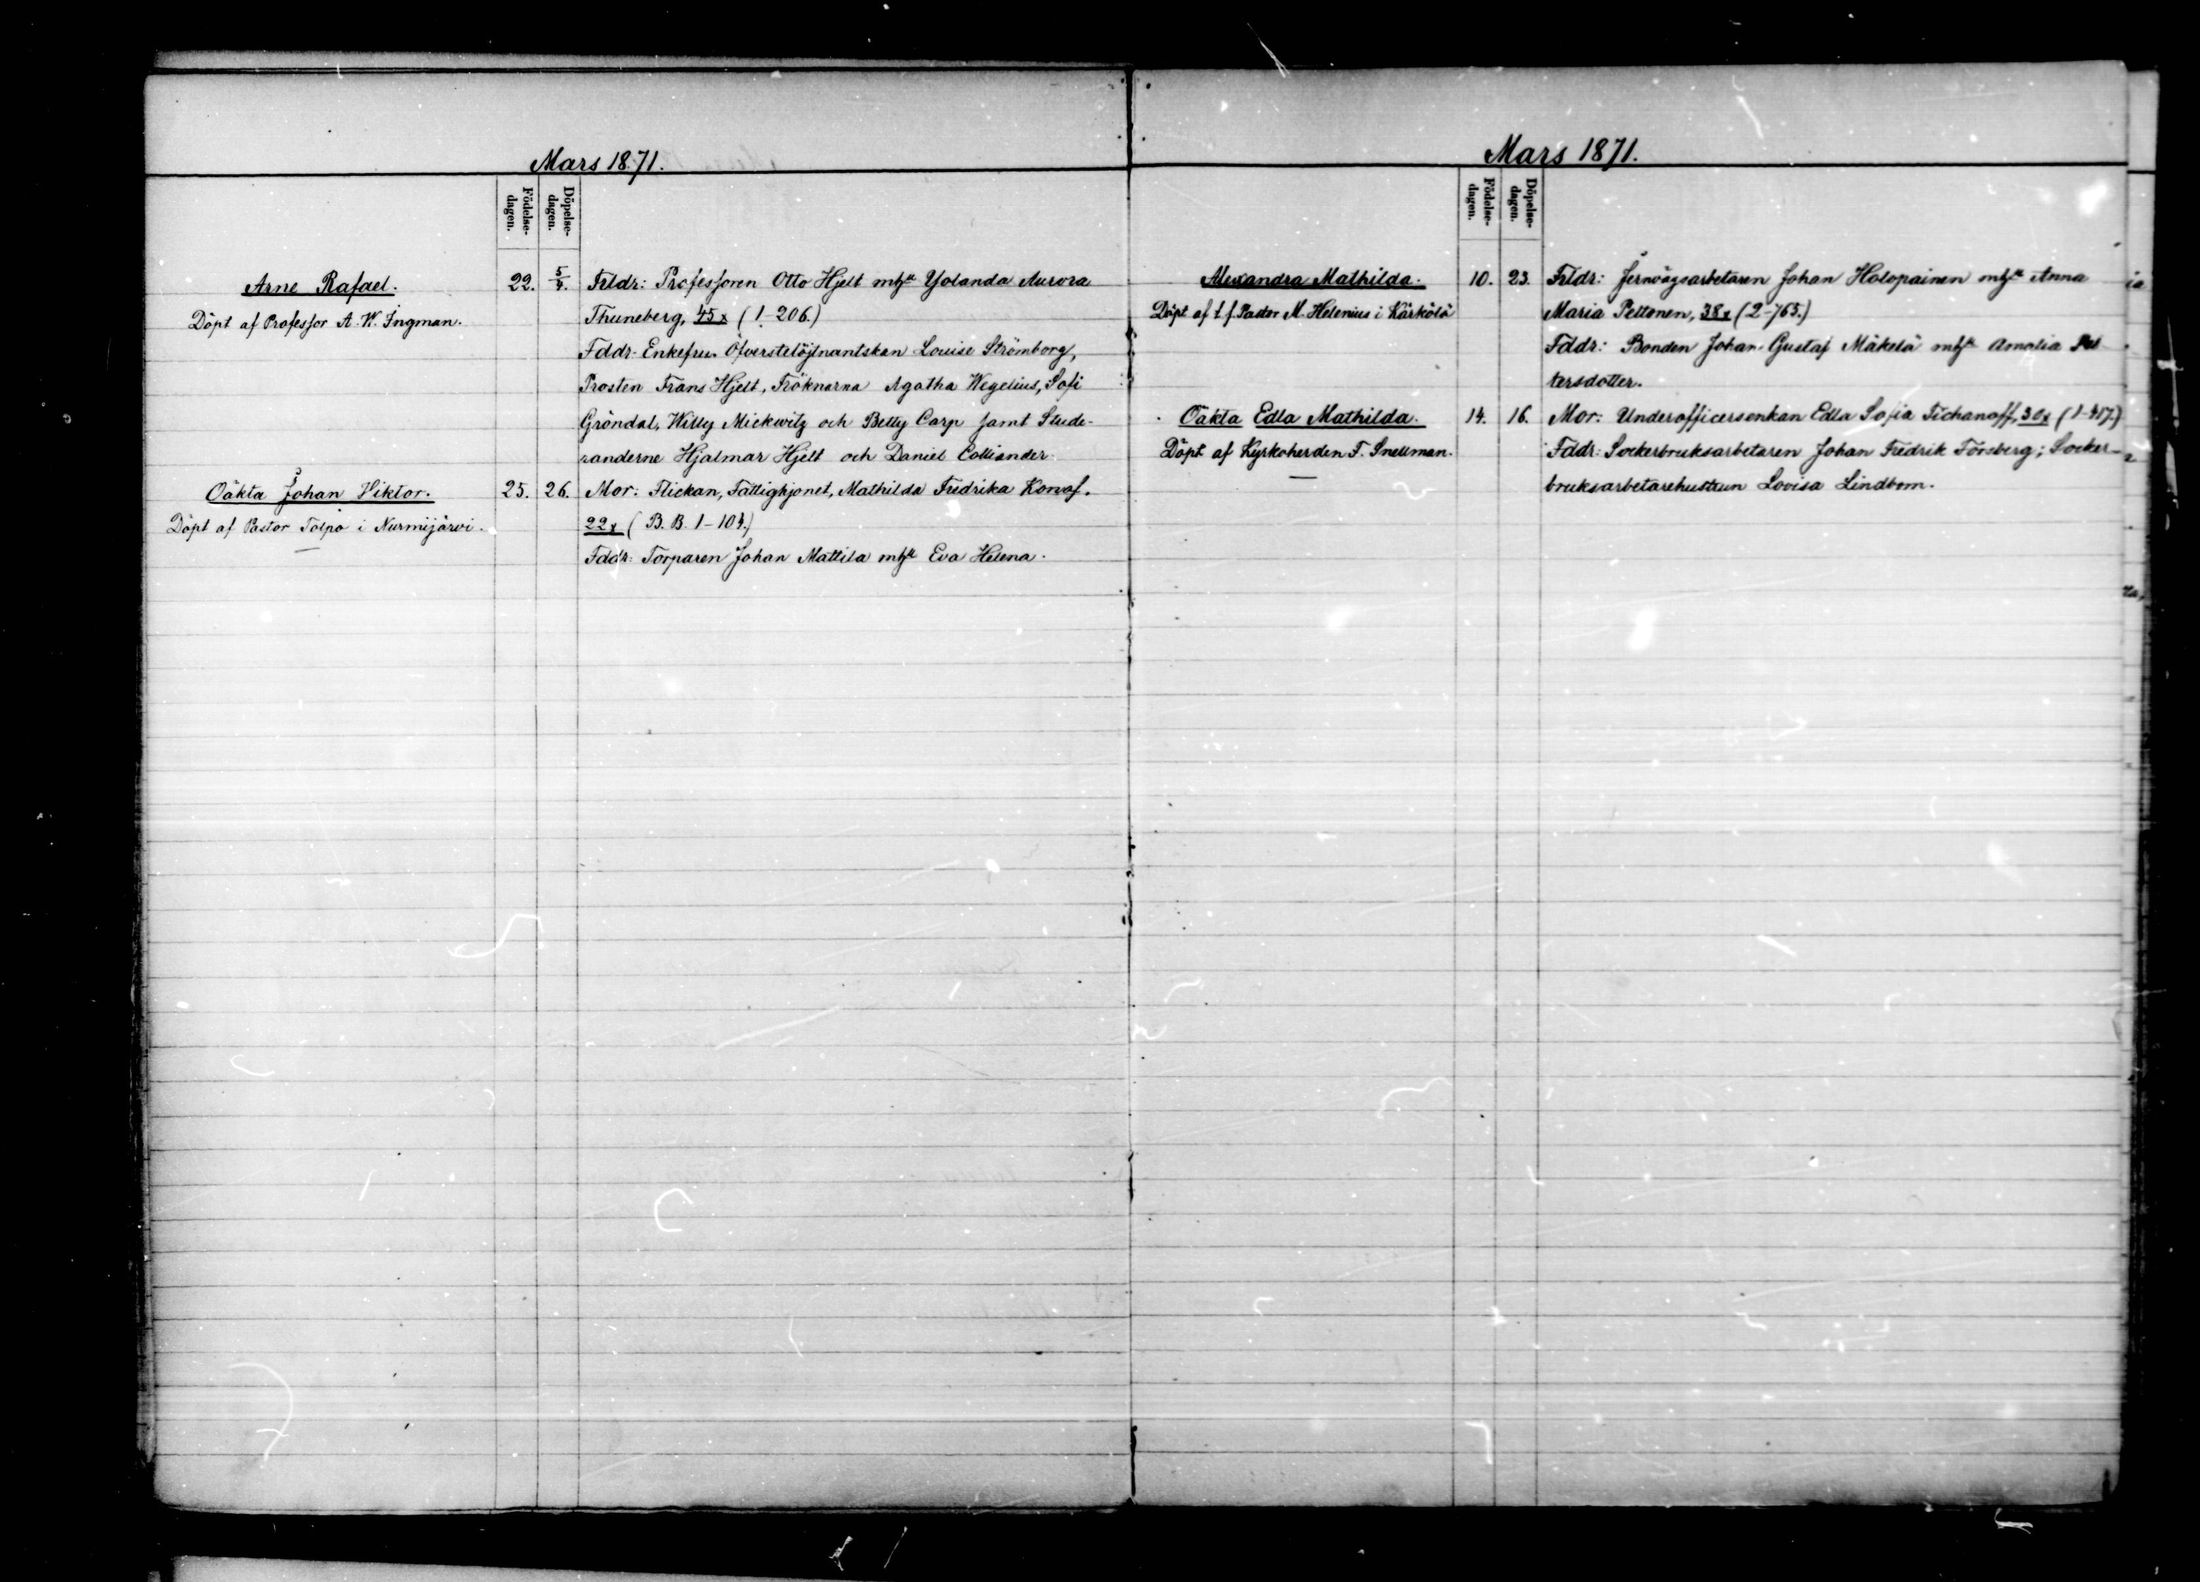 Mars 1871.
Födelse-dagen.
Döpelse-dagen.
Arne Rafael.
Döpt af Professor A. W. Ingman.
22. 5/4.
Frldr: Professoren Otto Hjelt mhu Yolanda Aurora
Thuneberg, 45x (1-206.)
Fddr: Enkefru Öfverstelöjtnantskan Louise Strömborg,
Prosten Frans Hjelt, Fröknarna Agatha Wegelius, Sofi
Gröndal, Willy Mickwitz och Betty Carp samt Stude-
randerne Hjalmar Hjelt och Daniel Colliander.
Oäkta Johan Viktor.
Döpt af Pastor Tolpo i Nurmijärvi.
25. 26.
Mor: Flickan, Fattighjonet, Mathilda Fredrika
22x (B. B. 1-104.)
Fddr: Torparen Johan Mattila mhu Eva Helena.
Mars 1871.
Födelse-dagen.
Döpelse-dagen.
Alexandra Mathilda.
Döpt af t. f. Pastor M. Helenius i Kärkölä
10. 23.
Frldr: Jernvägsarbetaren Johan Holopainen mhu Anna
Maria Peltonen, 38x (2-765.)
Fddr: Bonden Johan Gustaf Mäkelä mhu Amalia Pet
tersdotter.
Oäkta Edla Mathilda.
Döpt af Kyrkoherden F. Snellman.
14. 16.
Mor: Underofficersenkan Edla Sofia Tichanoff, 30x (1-417.)
Fddr: Sockerbruksarbetaren Johan Fredrik Forsberg; Socker-
bruksarbetarehustrun Lovisa Lindbom.